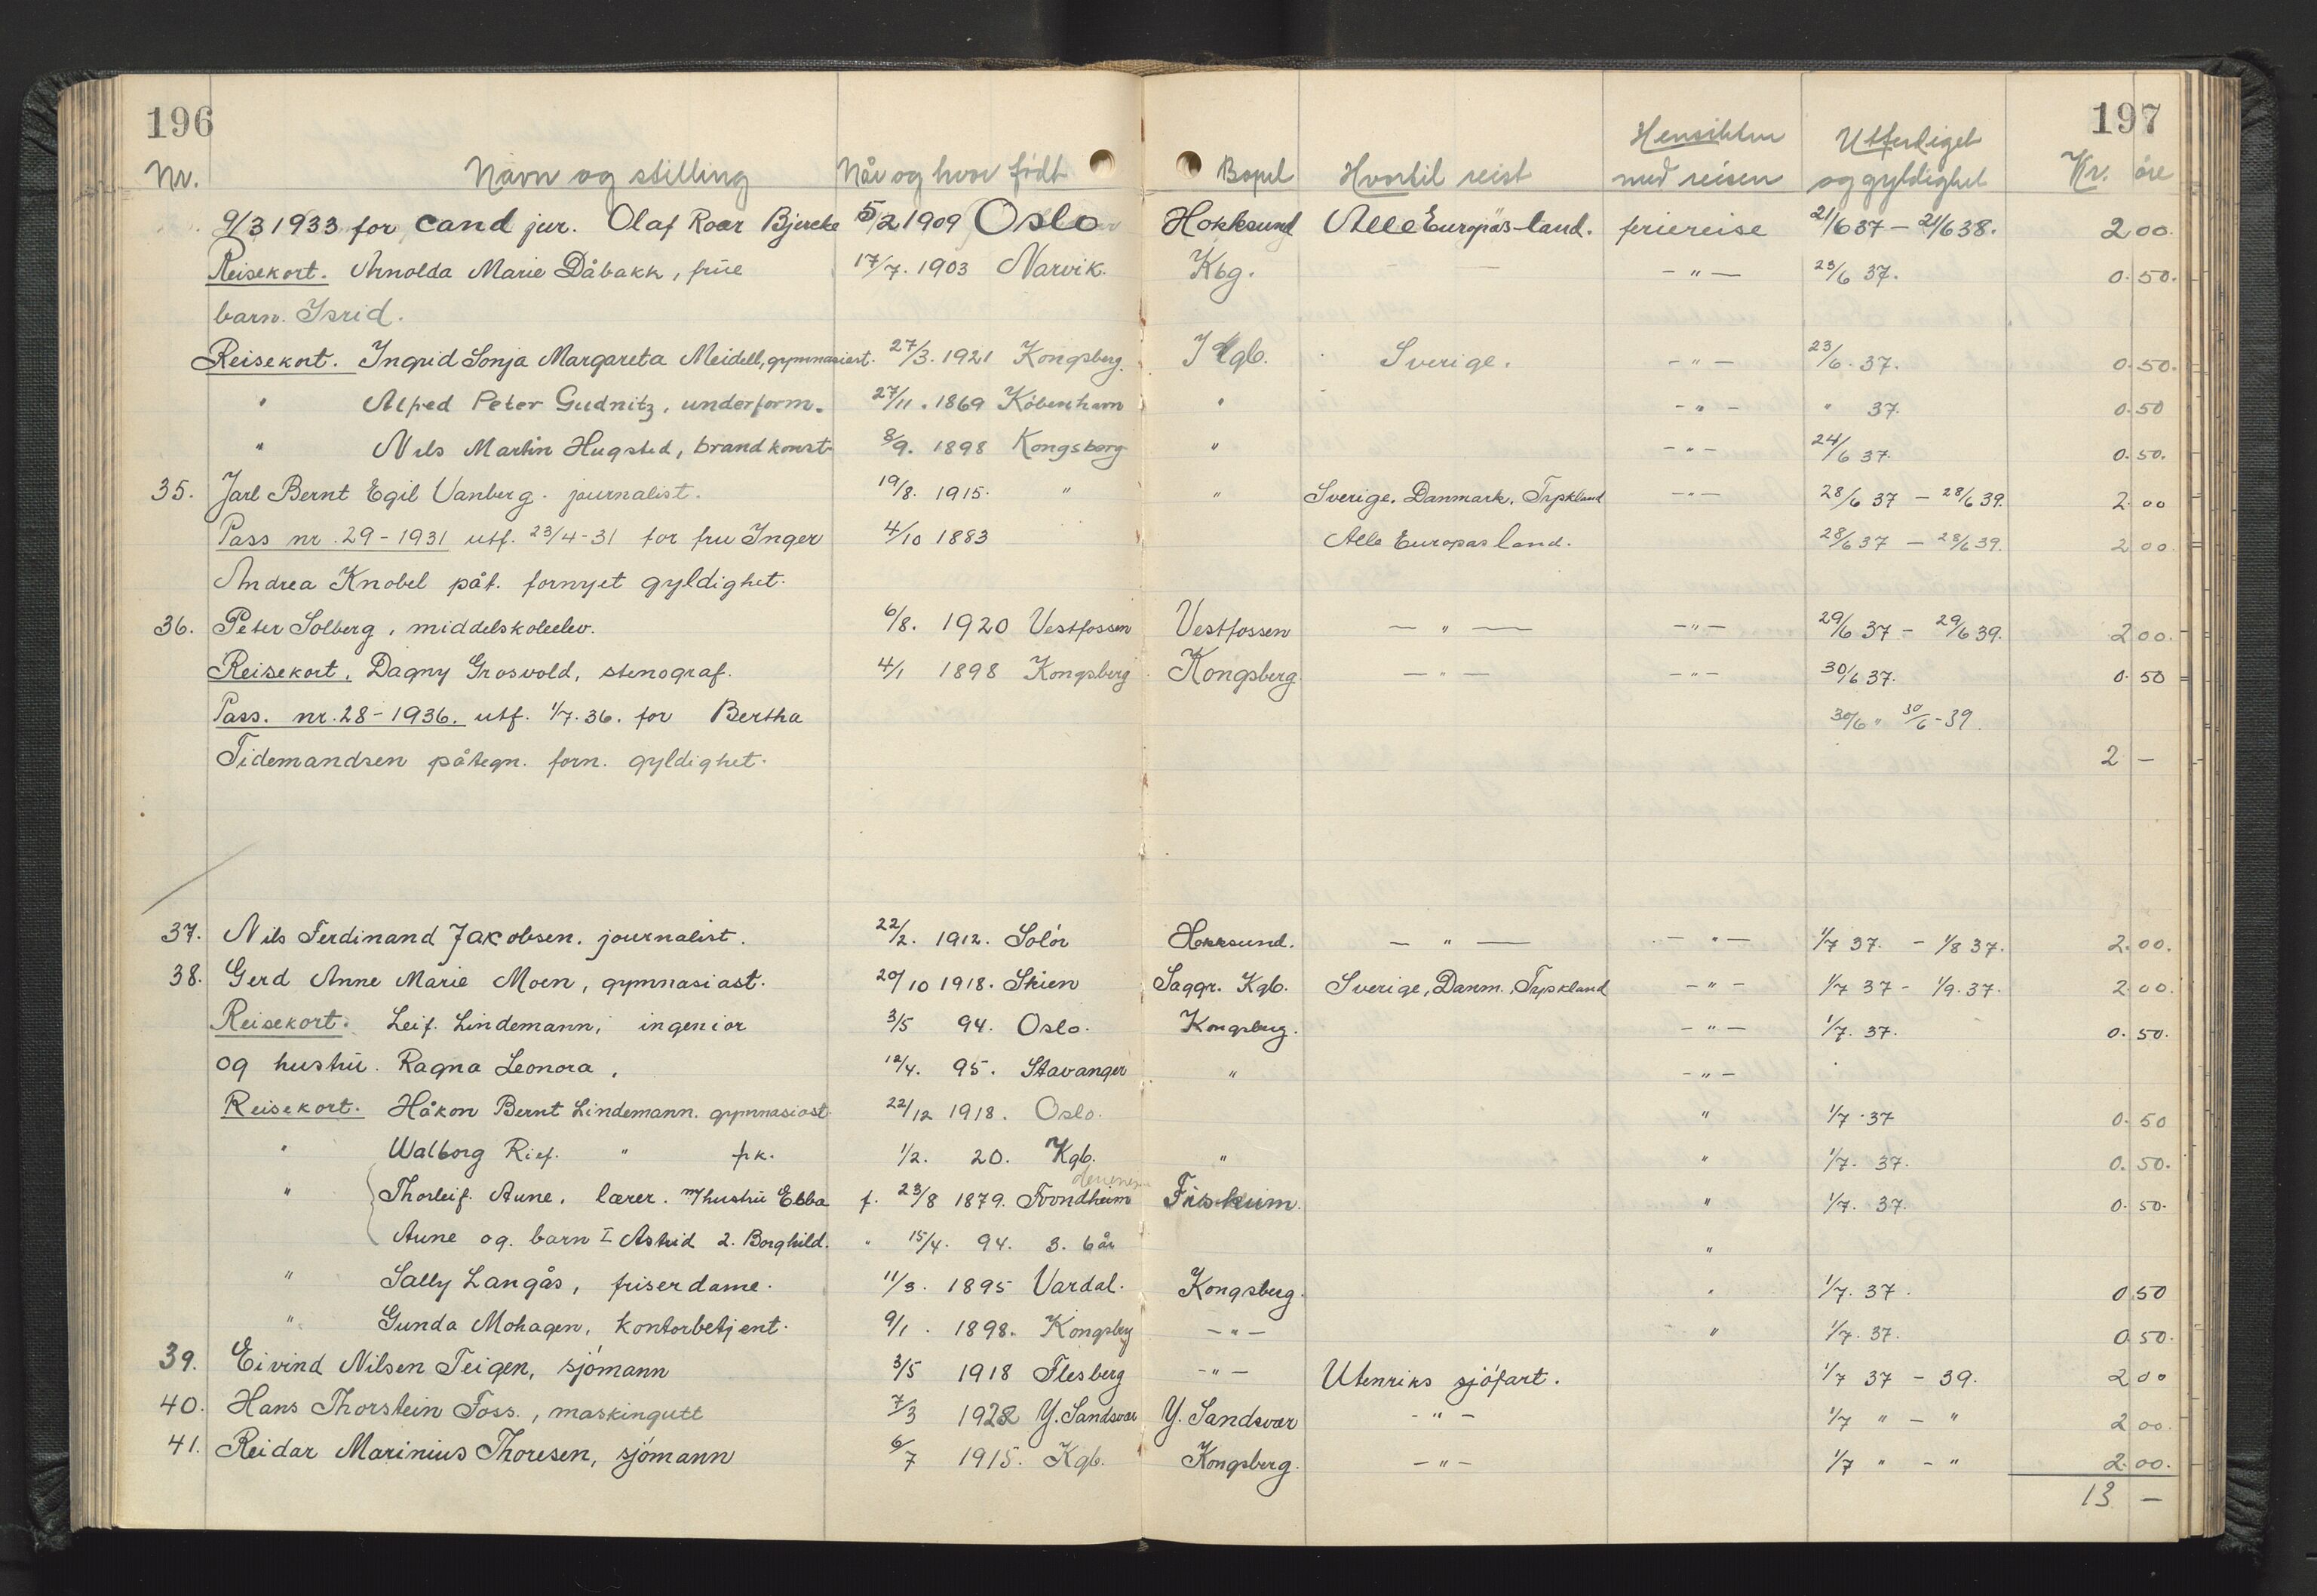 196
197
Nr. Navn og stilling Når og hvor født Bopel Hvortil reist Hensikten med reisen Utferdiget og gyldighet Kr. öre
9/3 1933 for cand jur. Olaf Roar Bjercke 5/2 1909 Oslo Hokksund Alle Europas land. feriereise 21/6 37 - 21/6 38. 2 00
Reisekort. Arnolda Marie Dåbakk, frue 17/7. 1903 Narvik. Kbg. - " - 23/6 37. 0. 50.
barn. Isrid.
Reisekort. Ingrid Sonja Margareta Meidell, gymnasiast. 27/3. 1921 Kongsberg. Kgb. Sverige. - " - 23/6. 37. 0. 50.
" Alfred Peter Gudnitz, underform. 27/11. 1869 Köbenhavn " - " - " 37. 0. 50
" Nils Martin Hugsted, brandkonst. 8/9. 1898 Kongsberg " - " - 24/6 37. 0. 50.
35. Jarl Bernt Egil Vanberg. journalist. 19/8. 1915. " " Sverige. Danmark. Tyskland - " - 28/6 37 - 28/6 39. 2. 00
Pass nr. 29 - 1931 utf. 23/4-31 for fru Inger 4/10 1883 Alle Europas land. 28/6 37 - 28/6 39. 2 00
Andrea Knobel påt. fornyet gyldighet.
36. Peter Solberg, middelskoleelev. 6/8. 1920 Vestfossen Vestfossen - " - - " - 29/6 37 - 29/6 39. 2 00.
Reisekort. Dagny Grosvold, stenograf. 4/1 1898 Kongsberg Kongsberg. - " - - " - 30/6 37. 0. 50
Pass. nr. 28 - 1936. utf. 1/7. 36. for Bertha 30/6 " 30/6 - 39.
Tidemandsen påtegn. forn. gyldighet. 2 -
37. Nils Ferdinand Jakobsen. journalist. 22/2. 1912. Solör Hokksund. - " - - " - 1/7 37. - 1/8 37. 2. 00.
38. Gerd Anne Marie Moen, gymnasiast. 20/10 1918. Skien Saggr. Kgb. Sverige, Danm. Tyskland - " - 1/7 37 - 1/9. 37. 2. 00.
Reisekort. Leif. Lindemann, ingeniør 3/5 94. Oslo. Kongsberg. - " - 1/7. 37. 0. 50.
og hustru. Ragna Leonora, 12/4. 95. Stavanger " - " -
Reisekort. Håkon Bernt Lindemann. gymnasiast. 22/12 1918. Oslo. " 1/7. 37 0. 50
" Walborg Rief. " frk. 1/2. 20. Kgb. " " 1/7. 37. 0. 50.
" Thorleif. Aune. lærer. m/hustru Ebba f. 23/8 1879. Trondheim Fiskum. " 1/7. 37. 0. 50.
Aune og. barn I Astrid 2. Borghild. " 15/4. 94. 3. 6 år "
" Sally Langås, friserdame. 11/3. 1895 Vardal. Kongsberg. " 1/7. 37. 0 50
" Gunda Mohagen, kontorbetjent. 9/1. 1898. Kongsberg - " - " 1/7. 37. 0 50.
39. Eivind Nilsen Teigen, sjömann 3/5 1918 Flesberg - " - Utenriks sjöfart. 1/7 37 - 39. 2 00
40. Hans Thorstein Foss., maskingutt 7/3 1922 Y. Sandsvær Y. Sandsvær - " - 1/7 " - " 2 00.
41. Reidar Marinius Thoresen, sjömann 6/7 1915. Kgb. Kongsberg. - " - 1/7 " - " 2. 00.
13 -